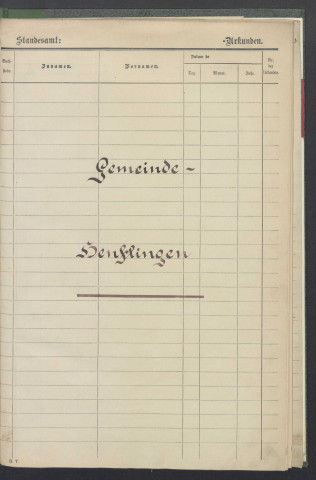 Standesamt: -Urkunden.
Zunamen. Vornamen. Datum de
Tag. Monat. Jahr. Nr. der Urkunden
Gemeinde-